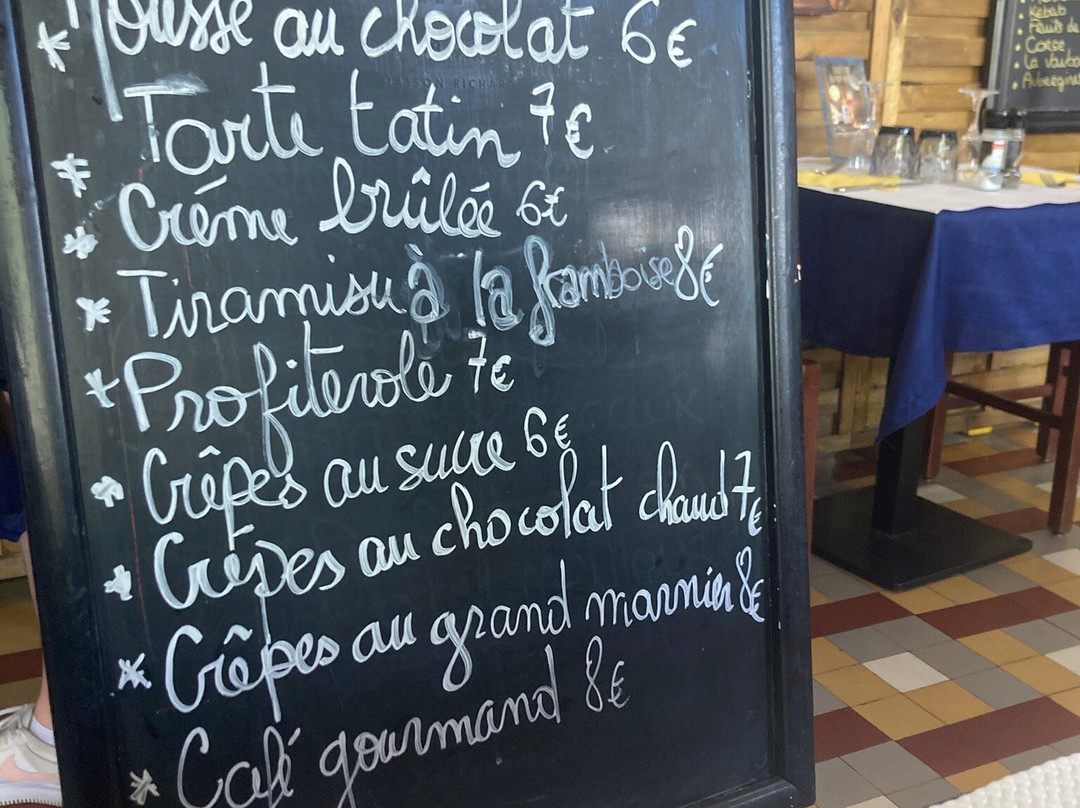 * Mousse au chocolat 6€
MAISON RICHARD
* Tarte tatin 7€
* Créme brûlée 6€
* Tiramisu à la framboise 8€
* Profiterole 7€
* Crêpes au sucre 6€
* Crêpes au chocolat chaud 7€
* Crêpes au grand marnier 8€
* Café gourmand 8€
Kebab
Fruits de
• Corse
• La Vauba
• Aubergine